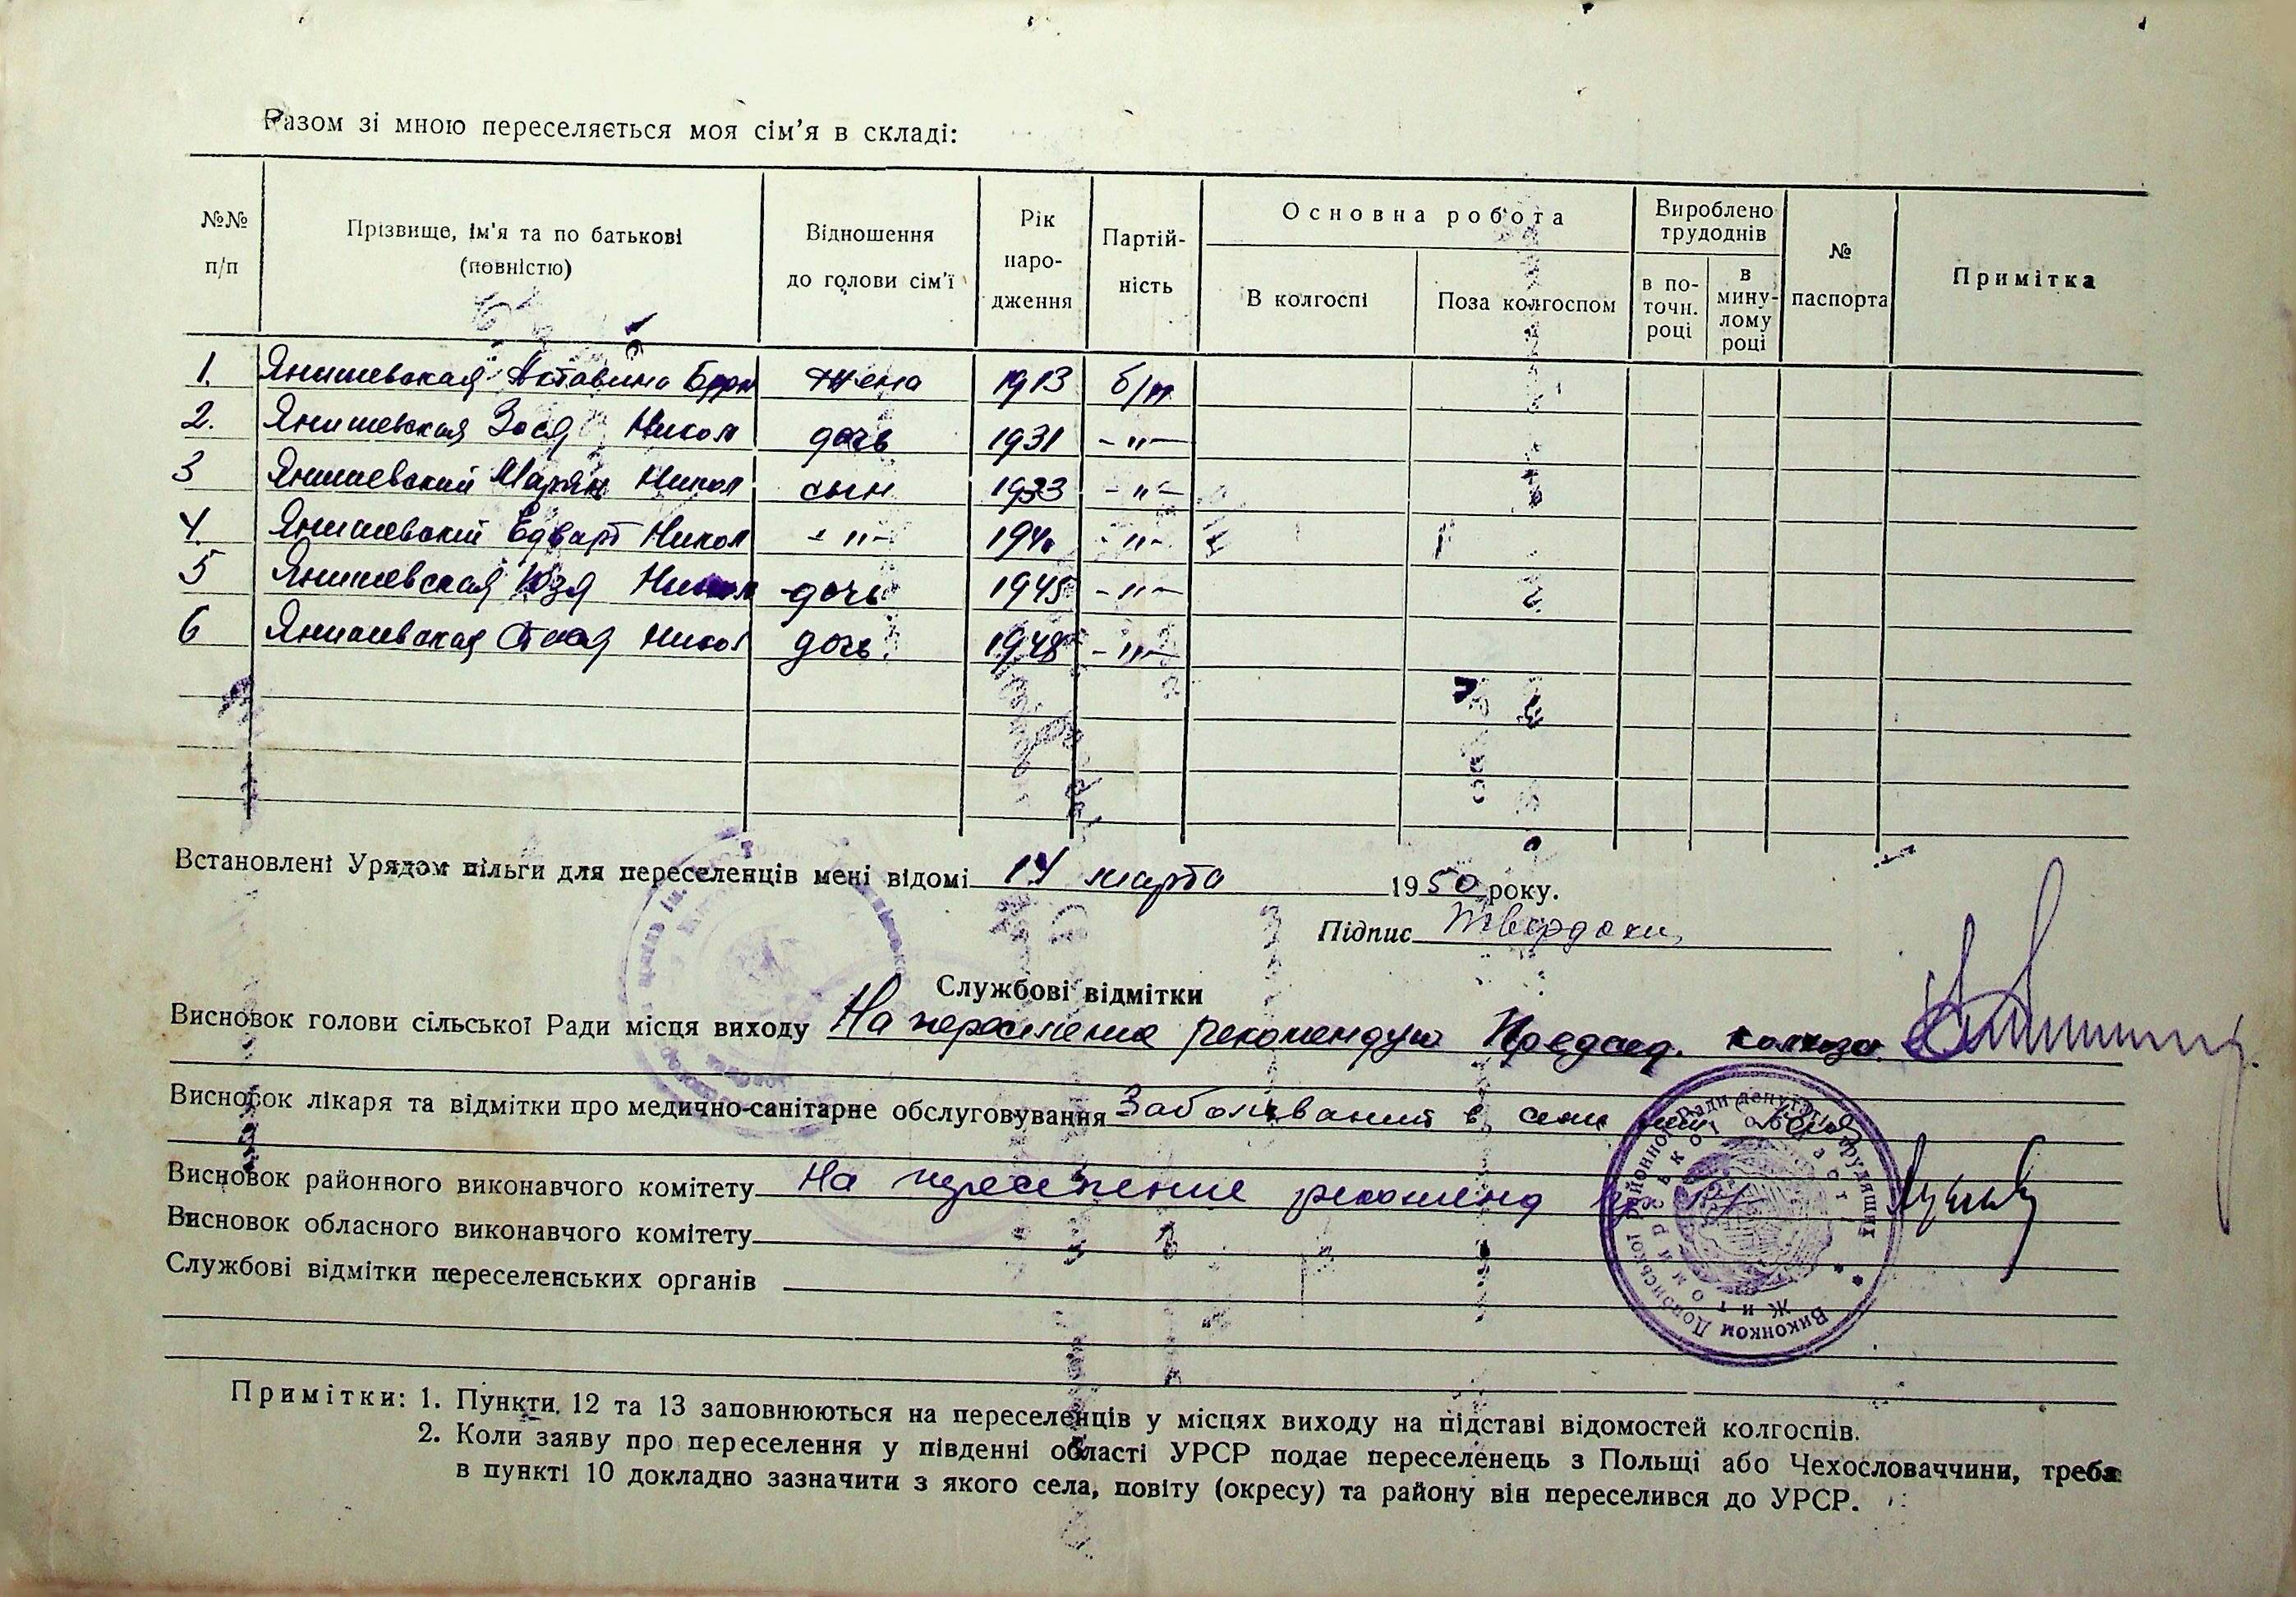 Разом зі мною переселяється моя сім'я в складі:
№№ п/п
Прізвище, ім'я та по батькові (повністю)
Відношення до голови сім'ї
Рік народження
Партійність
Основна робота
В колгоспі
Поза колгоспом
Вироблено трудоднів
в поточн. році
в минулому році
№ паспорта
Примітка
1. Янишевская Броn жена 1913 б/п
2. Янишевская Зося Никол дочь 1931 -"-
3 Янишевский Марян Никол сын 1933 -"-
4. Янишевский Едварт Никол -"- 1940 -"-
5 Янишевская Юзя Никол дочь 1945 -"-
6 Янишевская Стася Никол дочь 1948 -"-
Встановлені Урядом пільги для переселенців мені відомі 14 марта 1950 року.
Підпис
Службові відмітки
Висновок голови сільської Ради місця виходу На переселение рекомендую Председ. колхоза
Висновок лікаря та відмітки про медично-санітарне обслуговування Заболеваний в семи нет
Висновок районного виконавчого комітету На переселение рекоменд
Висновок обласного виконавчого комітету
Службові відмітки переселенських органів
Виконком районної Ради депутатів трудящих
Житомирської області
Примітки: 1. Пункти 12 та 13 заповнюються на переселенців у місцях виходу на підставі відомостей колгоспів.
2. Коли заяву про переселення у південні області УРСР подає переселенець з Польщі або Чехословаччини, треба
в пункті 10 докладно зазначити з якого села, повіту (окресу) та району він переселився до УРСР.